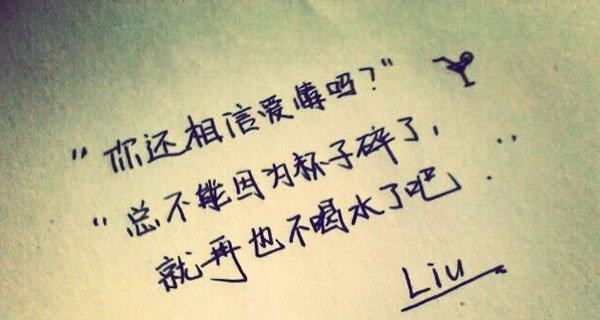 "你还相信爱情吗?"
"总不能因为杯子碎了,
就再也不喝水了吧..
Liu